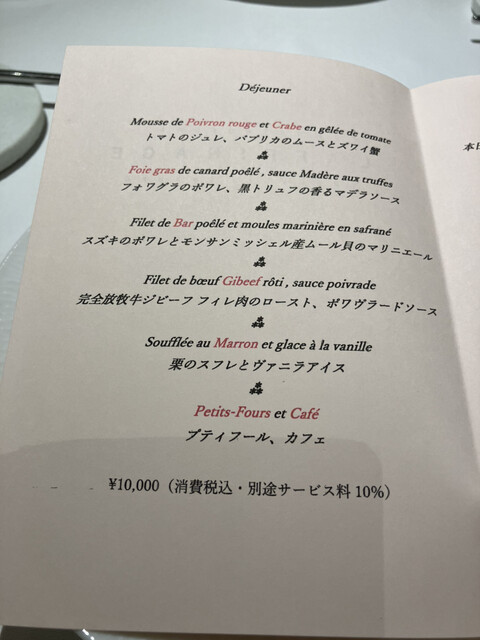 Déjeuner
Mousse de Poivron rouge et Crabe en gêlée de tomate
トマトのジュレ、パプリカのムースとズワイ蟹
Foie gras de canard poêlé , sauce Madère aux truffes
フォワグラのポワレ、黒トリュフの香るマデラソース
Filet de Bar poêlé et moules marinière en safrané
スズキのポワレとモンサンミッシェル産ムール貝のマリニエール
Filet de bœuf Gibeef rôti , sauce poivrade
完全放牧牛ジビーフ フィレ肉のロースト、ポワヴラードソース
Soufflée au Marron et glace à la vanille
栗のスフレとヴァニラアイス
Petits-Fours et Café
プティフール、カフェ
¥10,000（消費税込・別途サービス料 10%）
本日